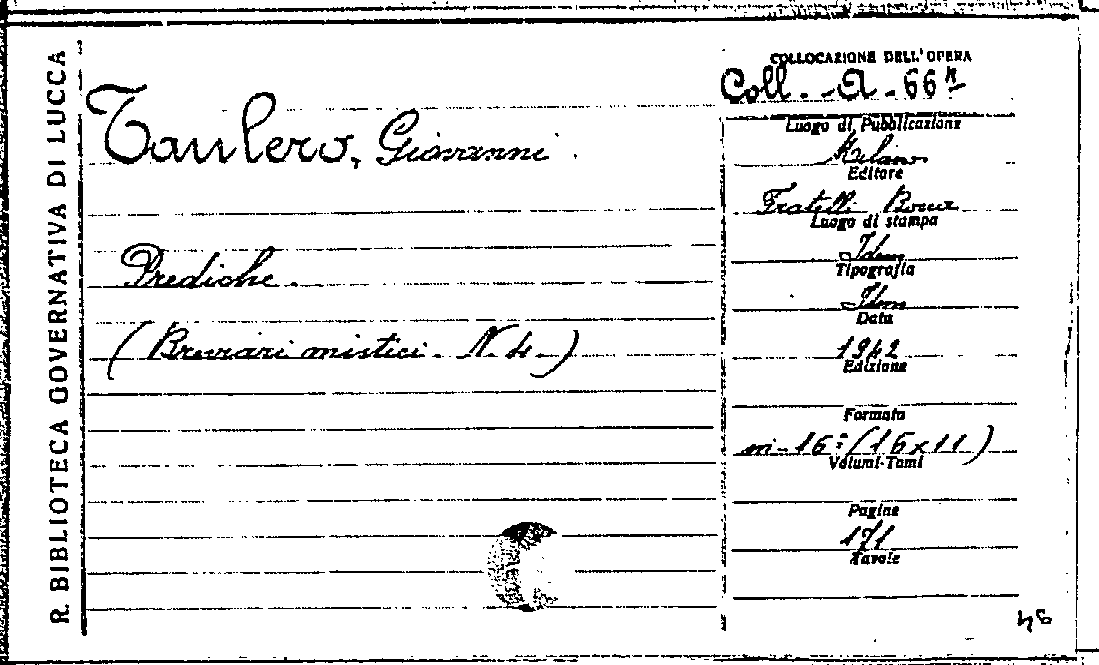 R. BIBLIOTECA GOVERNATIVA DI LUCCA
Taulero, Giovanni.
Prediche.
(Breviari mistici. N. 4.)
COLLOCAZIONE DELL'OPERA
Coll. A. 66
Luogo di Pubblicazione
Milano
Editore
Fratelli Bocca
Luogo di stampa
Idem
Tipografia
Idem
Data
1942
Edizione
Formato
in-16º (16x11)
Volumi-Tomi
Pagine
171
Tavole